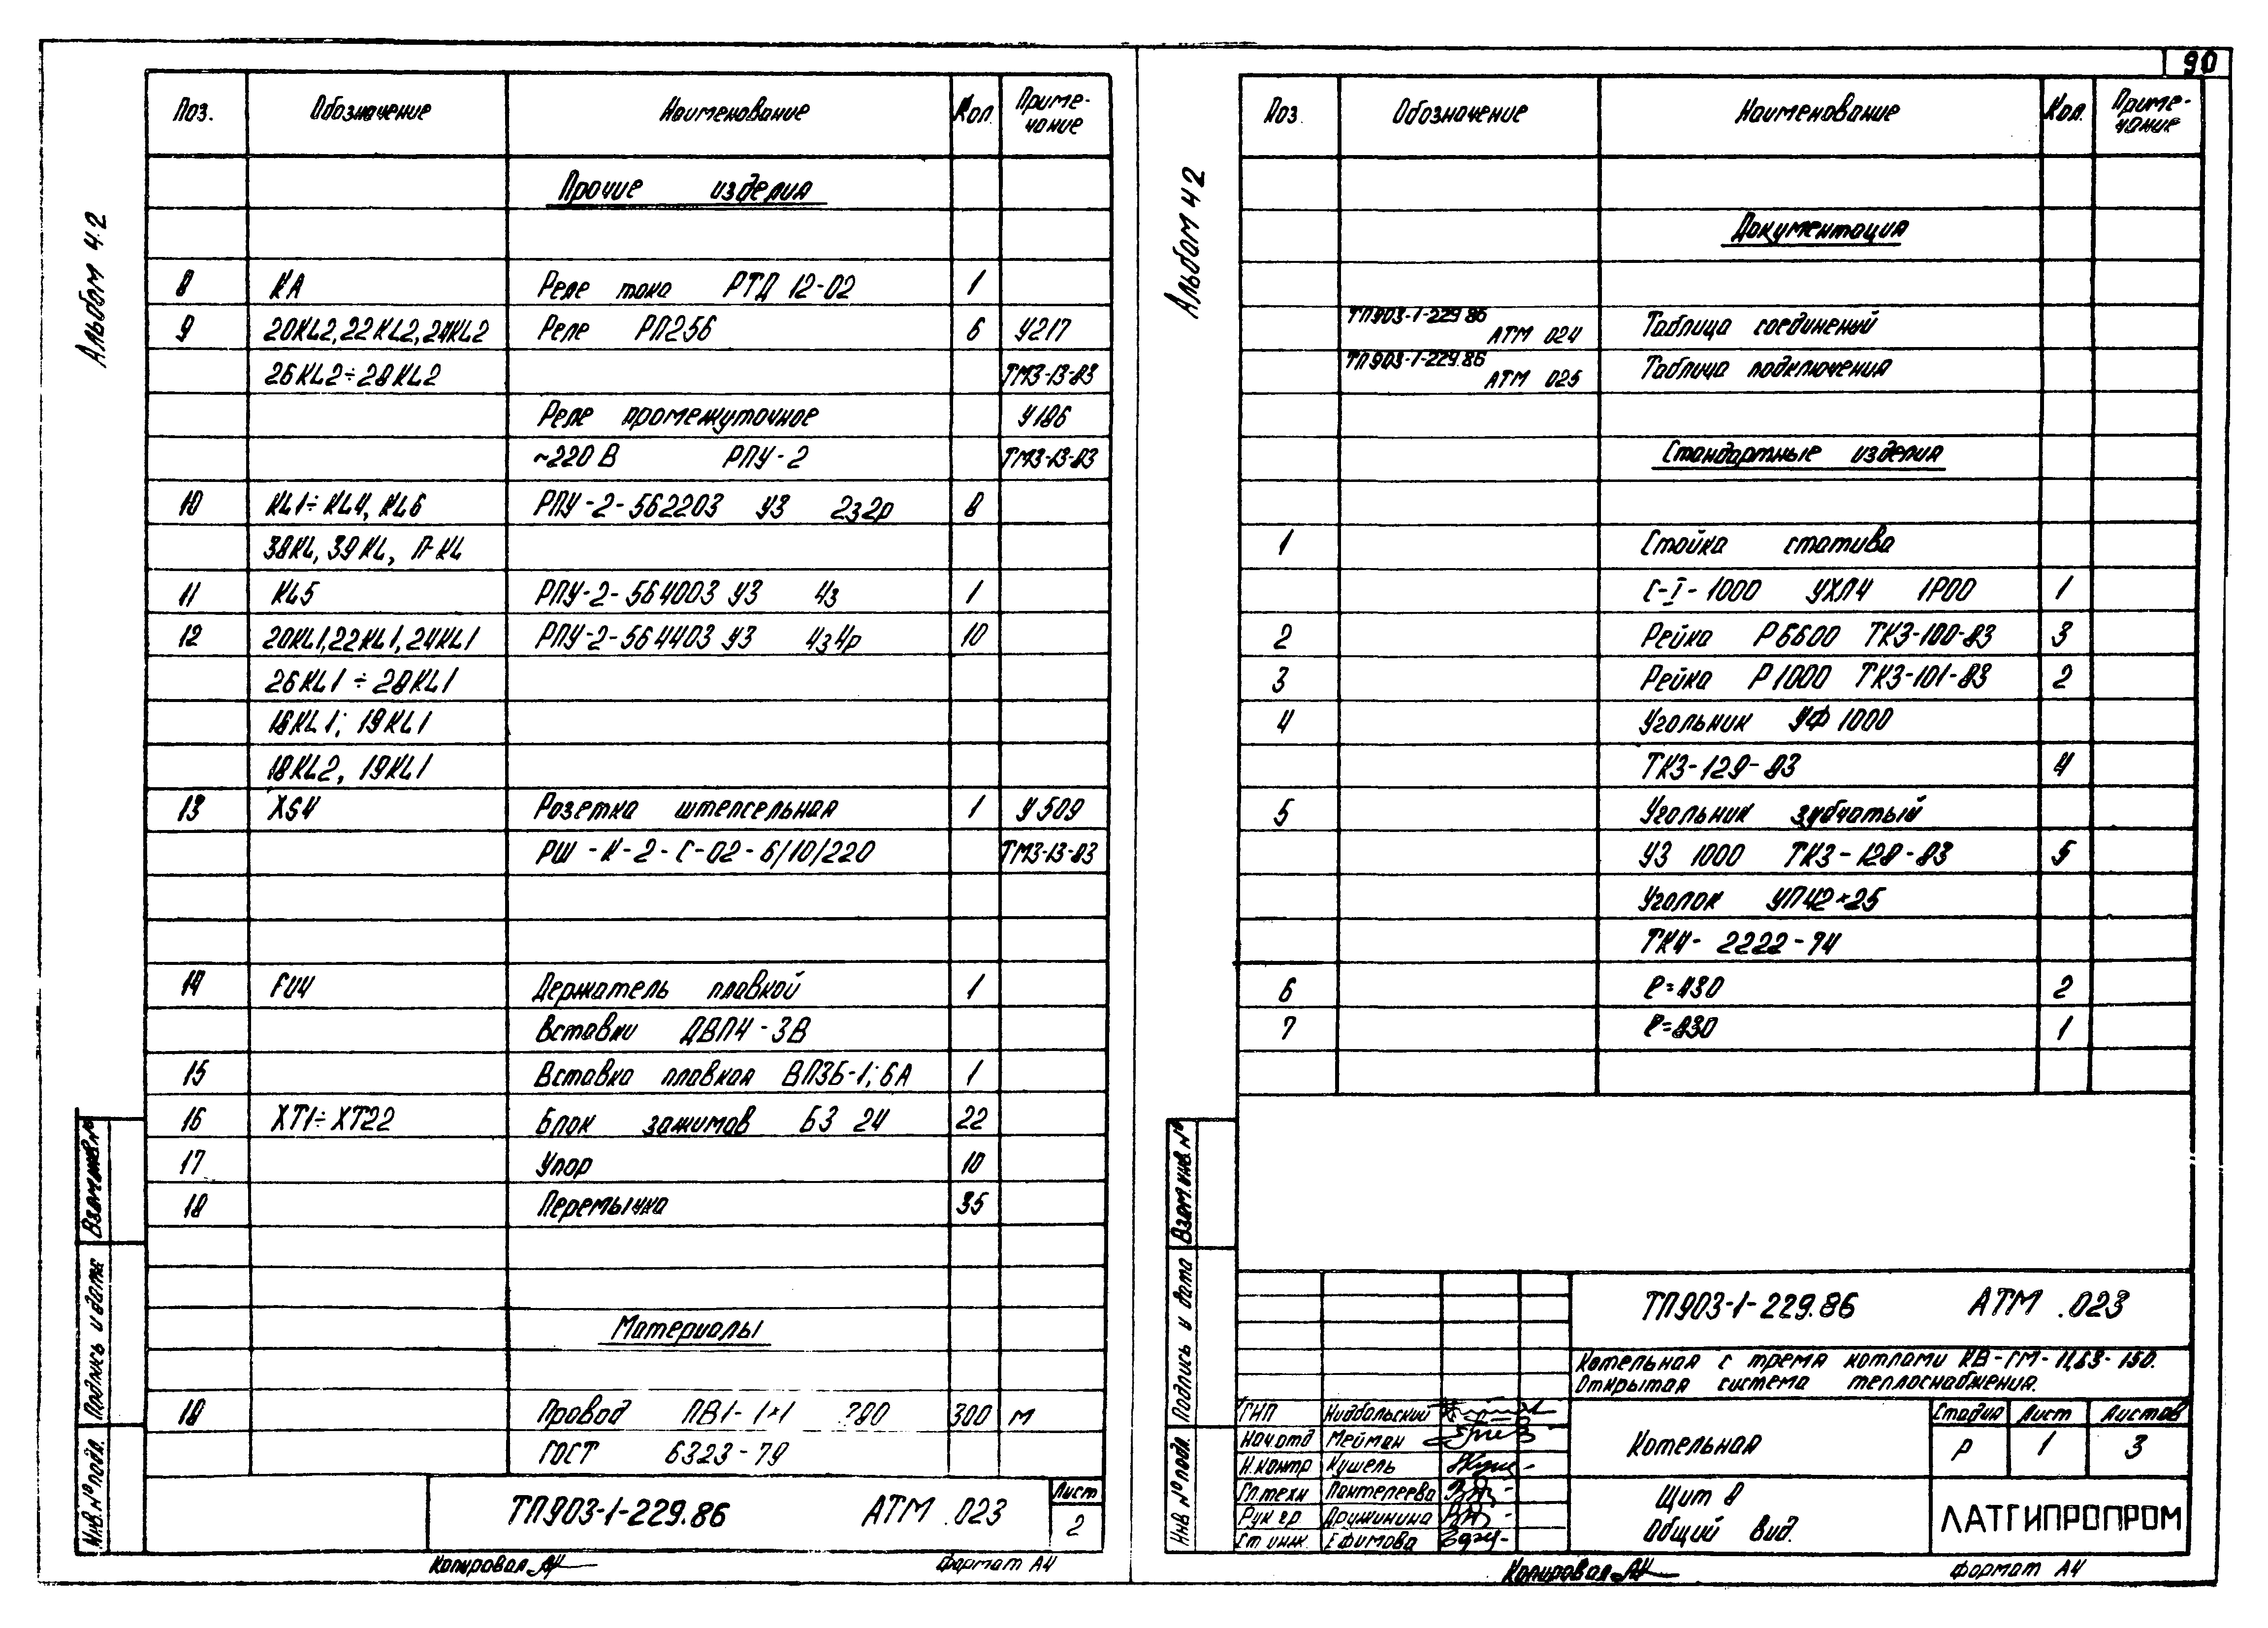 90
Альбом 4.2
Поз. Обозначение Наименование Кол. Приме-
чание
Прочие изделия
8 КА Реле тока РТД 12-02 1
9 20KL2, 22KL2, 24KL2 Реле РП256 6 У217
26KL2÷28KL2 ТМ3-13-83
Реле промежуточное У186
~220В РПУ-2 ТМ3-13-83
10 KL1÷KL4, KL6 РПУ-2-562203 У3 2з2р 8
38KL, 39KL, П-KL
11 KL5 РПУ-2-564003 У3 4з 1
12 20KL1, 22KL1, 24KL1 РПУ-2-564403 У3 4з4р 10
26KL1÷28KL1
18KL1; 19KL1
18KL2, 19KL1
13 XS4 Розетка штепсельная 1 У509
РШ-К-2-С-02-6/10/220 ТМ3-13-83
14 FU4 Держатель плавкой 1
вставки ДВП4-3В
15 Вставка плавкая ВП3Б-1; 6А 1
16 XT1÷XT22 Блок зажимов БЗ 24 22
17 Упор 10
18 Перемычка 35
Материалы
18 Провод ПВ1-1×1 380 300 м
ГОСТ 6323-79
ТП903-1-229.86 АТМ .023
Лист
2
Взам.инв.№
Подпись и дата
Инв.№ подл.
Копировал
Формат А4
Альбом 4.2
Поз. Обозначение Наименование Кол. Приме-
чание
Документация
ТП903-1-229.86
АТМ 024 Таблица соединений
ТП903-1-229.86
АТМ 025 Таблица подключения
Стандартные изделия
1 Стойка статива
С-I-1000 УХЛ4 IP00 1
2 Рейка Р6600 ТК3-100-83 3
3 Рейка Р1000 ТК3-101-83 2
4 Угольник УФ 1000
ТК3-129-83 4
5 Угольник зубчатый
УЗ 1000 ТК3-128-83 5
Уголок УП42×25
ТК4-2222-74
6 ℓ=430 2
7 ℓ=830 1
ТП903-1-229.86 АТМ .023
Котельная с тремя котлами КВ-ГМ-11,63-150.
Открытая система теплоснабжения.
ГИП Нидбальский
Нач.отд Мейман
Н.контр Кушель
Гл.техн Пантелеева
Рук гр Дружинина
Ст инж. Ефимова
Котельная
Стадия Лист Листов
Р 1 3
Щит 8
Общий вид.
ЛАТГИПРОПРОМ
Взам.инв.№
Подпись и дата
Инв № подл.
Копировал
Формат А4